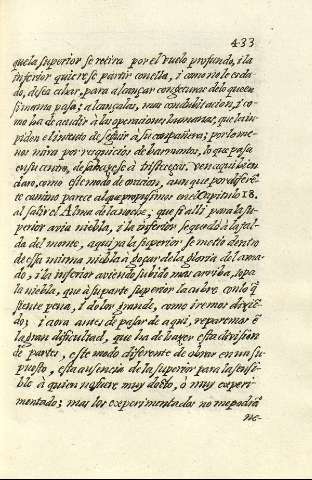 433
que la superior se retira por el vuelo profundo, i la
inferior quiere se partir con ella, i como no le es da-
do, desea echar, para alcançar con seguridad lo que en
si misma pasa; alcançalas, mas con dubitacion, i co-
mo ha de acudir à las operaciones humanas, que la im-
piden el intento de seguir à su compañera; por lo me-
nos mira por resquicios de barruntos, lo que pasa
en su centro, de sabor ese à tristeças. Ven aqui bien
claro, como este modo de oracion, aunque por diferē-
te camino parece al que propusimos en el Capitulo 18.
al salir el Alma de la noche; que si alli para la su-
perior avia niebla, i la inferior se quedò à la fal-
da del monte, aqui ya la superior se metiò dentro
de esta misma niebla à goçar de la gloria del ama-
do, i la inferior aviendo subido mas arriba, topa
la niebla, que à su parte superior la cubre con lo q̃
siente pena, i dolor grande, como iremos diziē-
do; i aora antes de pasar de aqui, repararemos ē
la gran dificultad, que ha de hazer esta division
de partes, este modo diferente de obrar en un su-
puesto, esta ausencia de la superior para la sensi-
ble à quien no fuere muy docto, ò muy experi-
mentado; mas los experimentados no me podrā
ne-